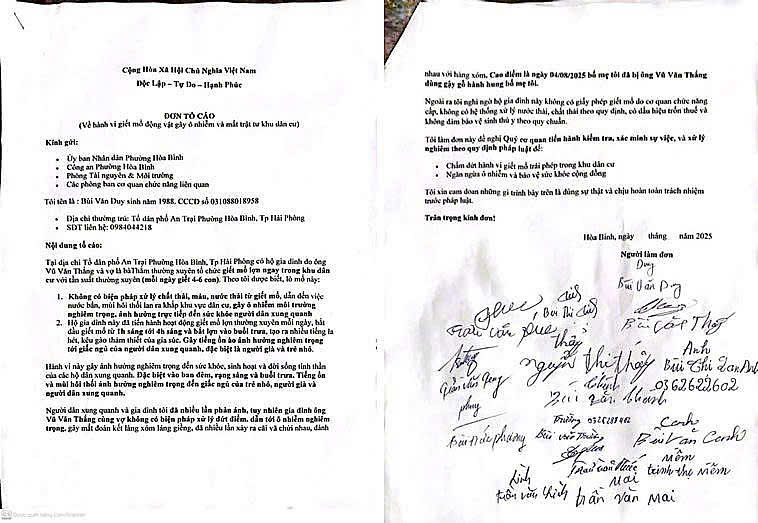 Cộng Hòa Xã Hội Chủ Nghĩa Việt Nam
Độc Lập – Tự Do – Hạnh Phúc
ĐƠN TỐ CÁO
(Về hành vi giết mổ động vật gây ô nhiễm và mất trật tự khu dân cư)
Kính gửi:
• Ủy ban Nhân dân Phường Hòa Bình
• Công an Phường Hòa Bình
• Phòng Tài nguyên & Môi trường
• Các phòng ban cơ quan chức năng liên quan
Tôi tên là : Bùi Văn Duy sinh năm 1988. CCCD số 031088018958
• Địa chỉ thường trú: Tổ dân phố An Trại Phường Hòa Bình, Tp Hải Phòng
• SDT liên hệ: 0984044218
Nội dung tố cáo:
Tại địa chỉ Tổ dân phố An Trại Phường Hòa Bình, Tp Hải Phòng có hộ gia đình do ông
Vũ Văn Thắng và vợ là bàThắm thường xuyên tổ chức giết mổ lợn ngay trong khu dân
cư với tần xuất thường xuyên (mỗi ngày giết 4-6 con). Theo tôi được biết, lò mổ này:
1. Không có biện pháp xử lý chất thải, máu, nước thải từ giết mổ, dẫn đến việc
nước bẩn, mùi hôi thối lan ra khắp khu vực dân cư, gây ô nhiễm môi trường
nghiêm trọng, ảnh hưởng trực tiếp đến sức khỏe người dân xung quanh
2. Hộ gia đình này đã tiến hành hoạt động giết mổ lợn thường xuyên mỗi ngày, bắt
đầu giết mổ từ 1h sáng tới 4h sáng và bắt lợn vào buổi trưa, tạo ra nhiều tiếng la
hét, kêu gào thảm thiết của gia súc. Gây tiếng ồn ào ảnh hưởng nghiêm trọng
tới giấc ngủ của người dân xung quanh, đặc biệt là người già và trẻ nhỏ.
Hành vi này gây ảnh hưởng nghiêm trọng đến sức khỏe, sinh hoạt và đời sống tinh thần
của các hộ dân xung quanh. Đặc biệt vào ban đêm, rạng sáng và buổi trưa. Tiếng ồn
và mùi hôi thối ảnh hưởng nghiêm trọng đến giấc ngủ của trẻ nhỏ, người già và
người dân xung quanh.
Người dân xung quanh và gia đình tôi đã nhiều lần phản ánh, tuy nhiên gia đình ông
Vũ Văn Thắng cùng vợ không có biện pháp xử lý dứt điểm. dẫn tới ô nhiễm nghiêm
trọng, gây mất đoàn kết làng xóm láng giềng, đã nhiều lần xảy ra cãi vã chửi nhau, đánh
Được quét bằng CamScanner
nhau với hàng xóm. Cao điểm là ngày 04/08/2025 bố mẹ tôi đã bị ông Vũ Văn Thắng
dùng gậy gỗ hành hung bố mẹ tôi.
Ngoài ra tôi nghi ngờ hộ gia đình này không có giấy phép giết mổ do cơ quan chức năng
cấp, không có hệ thống xử lý nước thải, chất thải theo quy định, có dấu hiệu trốn thuế và
không đảm bảo vệ sinh thú y theo quy chuẩn.
Tôi làm đơn này đề nghị Quý cơ quan tiến hành kiểm tra, xác minh sự việc, và xử lý
nghiêm theo quy định pháp luật để:
• Chấm dứt hành vi giết mổ trái phép trong khu dân cư
• Ngăn ngừa ô nhiễm và bảo vệ sức khỏe cộng đồng
Tôi xin cam đoan những gì trình bày trên là đúng sự thật và chịu hoàn toàn trách nhiệm
trước pháp luật.
Trân trọng kính đơn!
Hòa Bình, ngày tháng năm 2025
Người làm đơn
Duy
Bùi Văn Duy
Trần Văn
Nguyễn Thị Thấy
Anh
Bùi Thị Lan Anh
0362622602
Bùi Văn Thường
Canh
Bùi Văn Canh
Mềm
trịnh thị Mềm
Mai
trần văn Mai